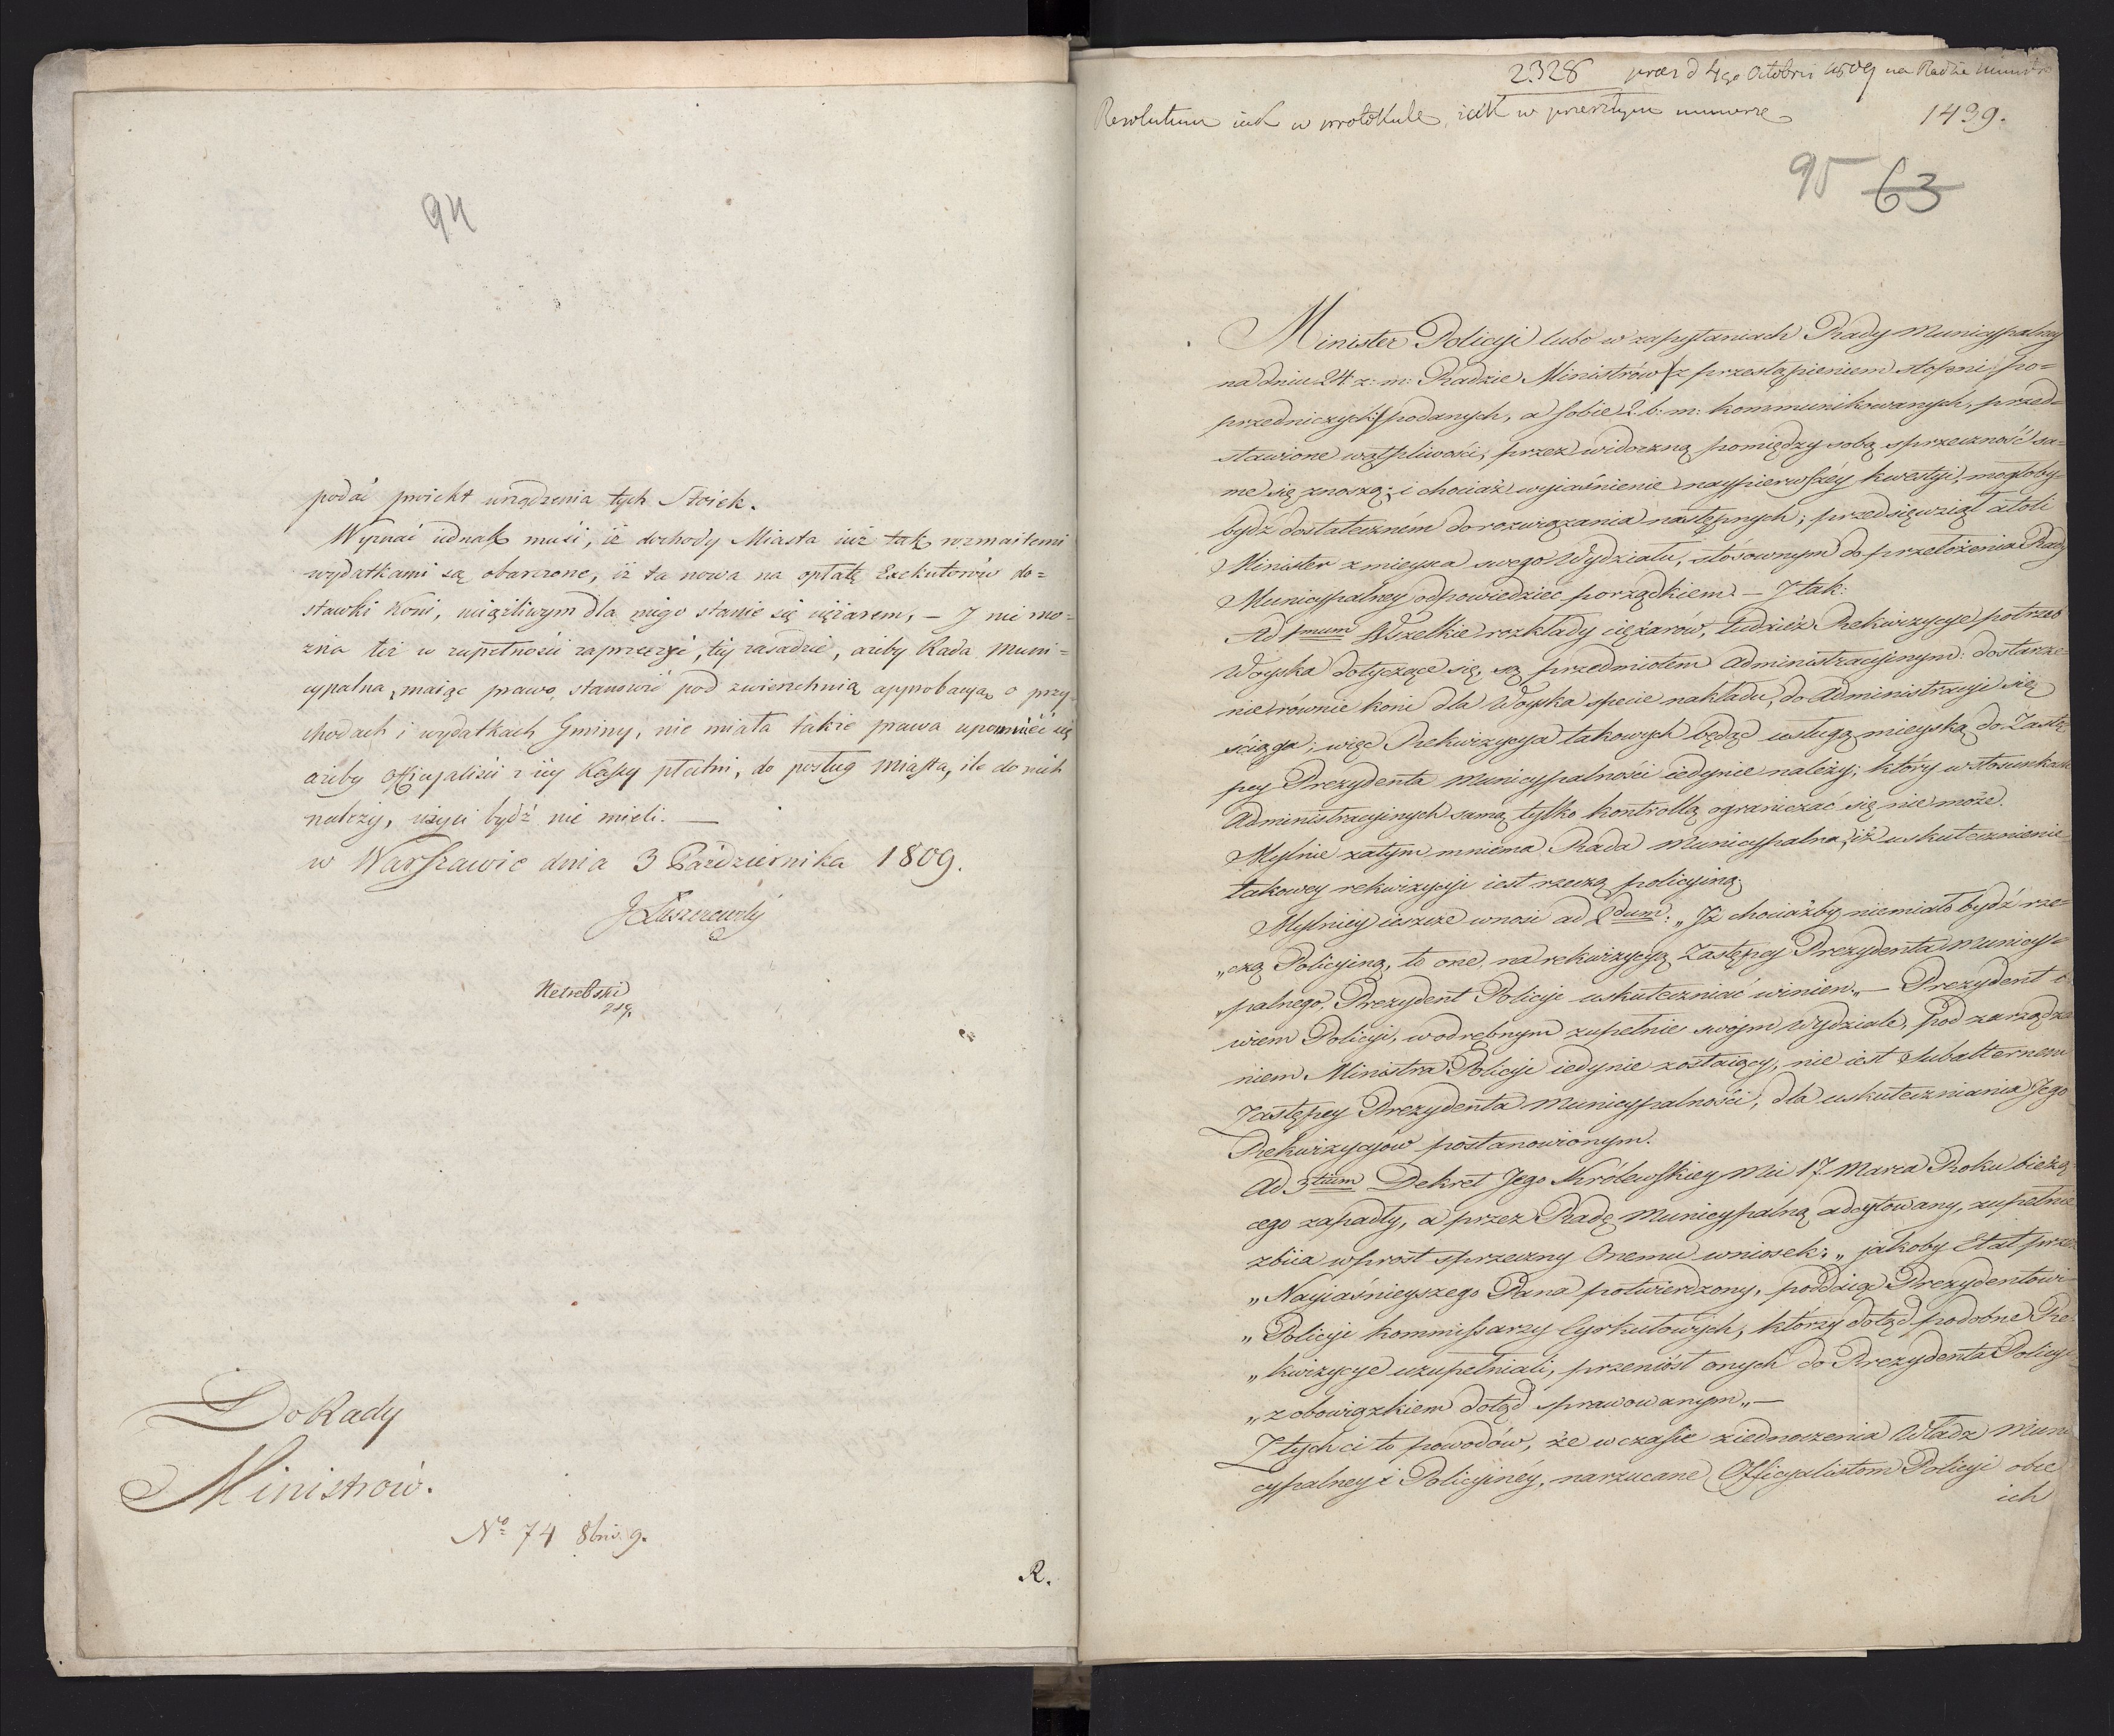 94
podać proiekt urządzenia tych Stoiek.
Wyznać iednak musi, iż dochody Miasta iuż tak rozmaitemi
wydatkami są obarczone, iż ta nowa na opłatę Exekutorów do=
stawki koni, uciążliwym dla niego stanie się ciężarem, – I nie mo=
żna też w zupełności zaprzeczyć, tey zasadzie, ażeby Rada Muni=
cypalna, maiąc prawo stanowić pod zwierzchnią approbacyą o przy=
chodach i wydatkach Gminy, nie miała także prawa upomnieć się
ażeby officyaliści z iey Kassy płatni, do posług Miasta, ile do nich
należy, użyci bydź nie mieli. —
w Warszawie dnia 3 Października 1809.
J Łuszczewski
Netrebski
Do Rady
Ministrów.
No 74 8bris 9.
R.
2328 praes d 4go Octobris 1809 na Radzie Ministró
Resolutum iak w protokule, iak w przeszłym numerze
1439.
95 63
Minister Policyi lubo w zapytaniach Rady Municypalney
na dniu 24. z: m: Radzie Ministrów /z przestąpieniem stopni po=
przedniczych/ podanych, a sobie 2. b: m: kommunikowanych, przed=
stawione wątpliwości, przez widoczną pomiędzy sobą sprzeczność sa=
me się znoszą; i chociaż wyiaśnienie naypierwszéy kwestyi, mogłoby
bydź dostateczném do rozwiązania następnych; przedsięwziął atoli
Minister z mieysca swego Wydziału, stósownym do przełożenia Rady
Municypalney odpowiedzieć porządkiem. – I tak:
Ad 1mum Wszelkie rozkłady ciężarów, tudzież Rekwizycye potrzeb
Woyska dotyczące się, są przedmiotem Administracyinym: dostarcze=
nie równie koni dla Woyska specie nakładu, do Administracyi się
ściąga; więc Rekwizycya takowych będąc usługą mieyską do Zastę=
pcy Prezydenta Municypalności iedynie należy; który w stosunkach
Administracyinych samą tylko kontrollą ograniczać się nie może.
Mylnie zatym mniema Rada Municypalna, iż uskutecznienie
takowey rekwizycyi iest rzeczą policyiną.
Mylniey ieszcze wnosi ad 2dum: „Iż chociażby niemiało bydź rze=
„czą Policyiną, to one, na rekwizycyą Zastępcy Prezydenta Municy=
„palnego, Prezydent Policyi uskuteczniać winien.„ – Prezydent 
wiem Policyi, w odrębnym zupełnie swoim Wydziale, pod zarządze
niem Ministra Policyi iedynie zostaiący, nie iest Subalternem
Zastępcy Prezydenta Municypalności, dla uskuteczniania Jego
Rekwizycyów postanowionym.
Ad 3tium Dekret Jego Królewskiey Mci 17. Marca Roku bieżą=
cego zapadły, a przez Radę Municypalną adcytowany, zupełnie
zbiia wprost sprzeczny Onemu wniosek: „jakoby Etat przez
„Nayiaśnieyszego Pana potwierdzony, poddaiąc Prezydentowi
„Policyi kommissarzy Cyrkułowych, którzy dotąd podobne Re=
„kwizycye uzupełniali, przeniósł onych do Prezydenta Policyi
„z obowiązkiem dotąd sprawowanym„ —
Z tych ci to powodów, że w czasie ziednoczenia Władz Muni
cypalney i Policyinéy, narzucane Officyalistom Policyi obce
ich